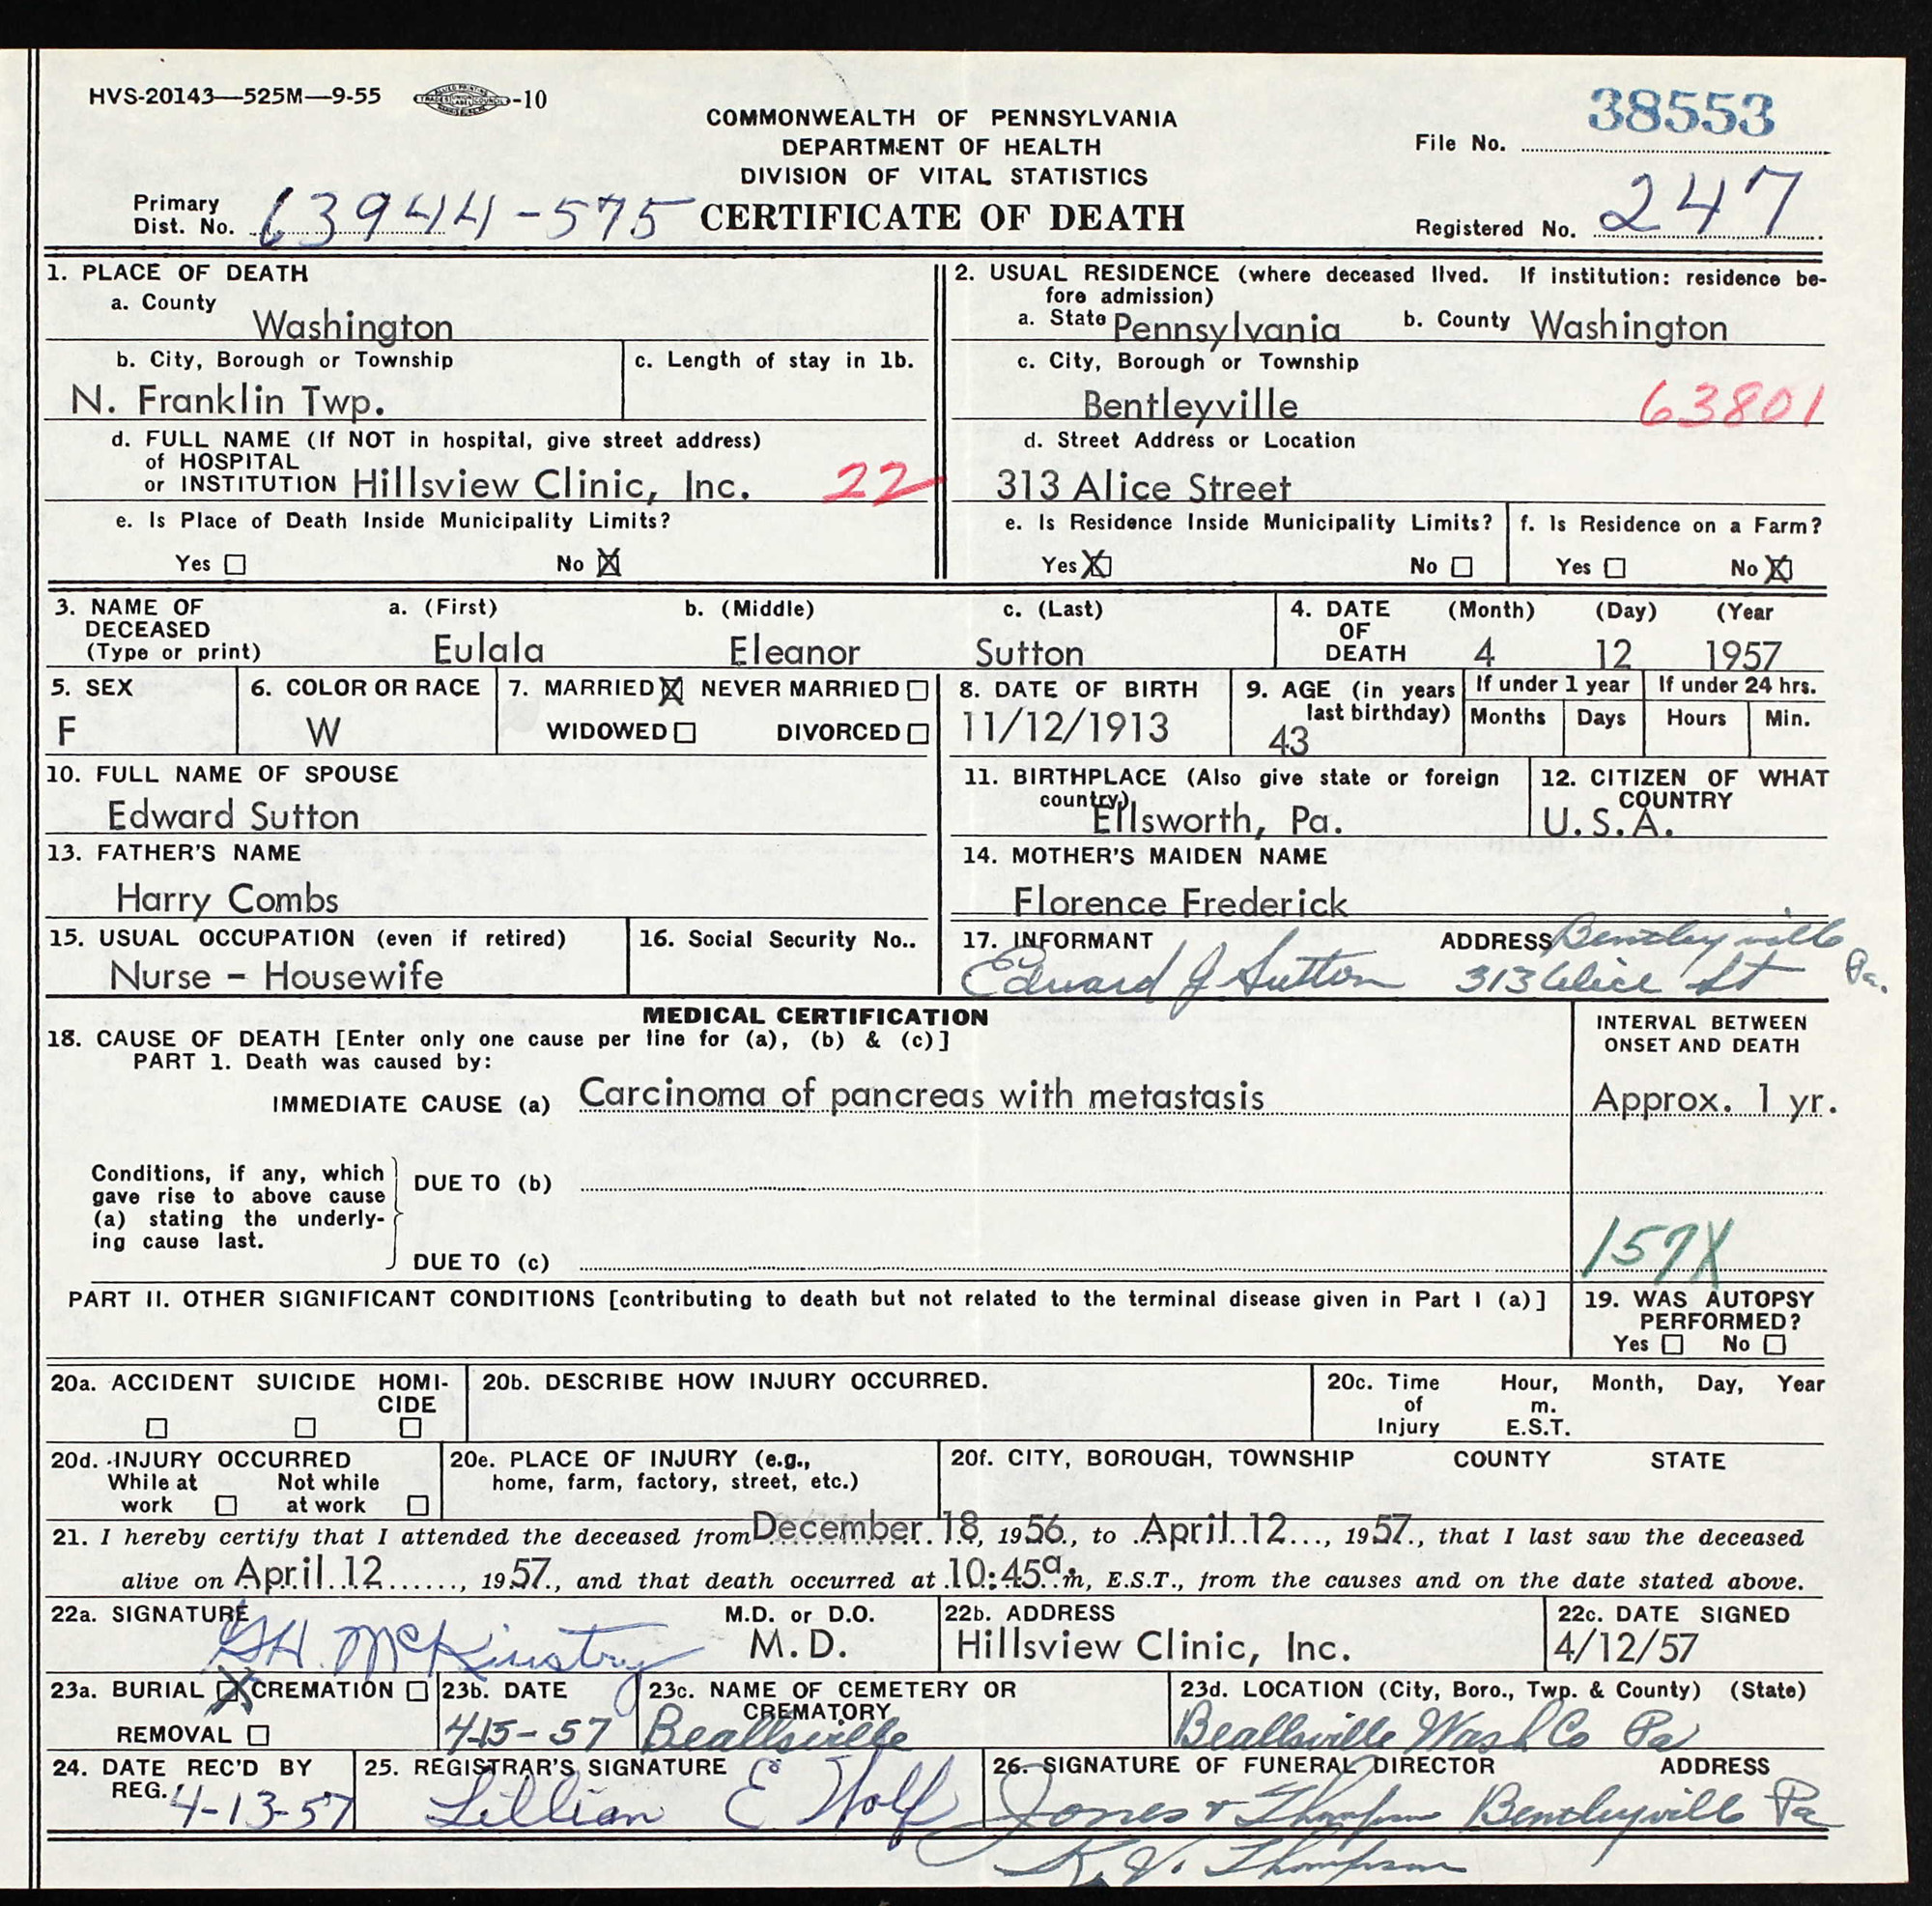 HVS-20143—525M—9-55 -10
COMMONWEALTH OF PENNSYLVANIA
DEPARTMENT OF HEALTH
DIVISION OF VITAL STATISTICS
CERTIFICATE OF DEATH
File No. 38553
Primary
Dist. No. 63944-575
Registered No. 247
1. PLACE OF DEATH
a. County
Washington
b. City, Borough or Township
c. Length of stay in 1b.
N. Franklin Twp.
d. FULL NAME (If NOT in hospital, give street address)
of HOSPITAL
or INSTITUTION Hillsview Clinic, Inc. 22
e. Is Place of Death Inside Municipality Limits?
Yes ☐ No ☒
2. USUAL RESIDENCE (where deceased lived. If institution: residence be-
fore admission)
a. State Pennsylvania b. County Washington
c. City, Borough or Township
Bentleyville 63801
d. Street Address or Location
313 Alice Street
e. Is Residence Inside Municipality Limits?
Yes ☒ No ☐
f. Is Residence on a Farm?
Yes ☐ No ☒
3. NAME OF
DECEASED
(Type or print)
a. (First) b. (Middle) c. (Last)
Eulala Eleanor Sutton
4. DATE
OF
DEATH
(Month) (Day) (Year
4 12 1957
5. SEX
F
6. COLOR OR RACE
W
7. MARRIED ☒ NEVER MARRIED ☐
WIDOWED ☐ DIVORCED ☐
8. DATE OF BIRTH
11/12/1913
9. AGE (in years
last birthday)
43
If under 1 year
Months Days
If under 24 hrs.
Hours Min.
10. FULL NAME OF SPOUSE
Edward Sutton
11. BIRTHPLACE (Also give state or foreign
country)
Ellsworth, Pa.
12. CITIZEN OF WHAT
COUNTRY
U.S.A.
13. FATHER'S NAME
Harry Combs
14. MOTHER'S MAIDEN NAME
Florence Frederick
15. USUAL OCCUPATION (even if retired)
Nurse – Housewife
16. Social Security No..
17. INFORMANT ADDRESS Bentleyville
Edward J Sutton 313 Alice St Pa.
MEDICAL CERTIFICATION
18. CAUSE OF DEATH [Enter only one cause per line for (a), (b) & (c)]
PART 1. Death was caused by:
INTERVAL BETWEEN
ONSET AND DEATH
IMMEDIATE CAUSE (a) Carcinoma of pancreas with metastasis Approx. 1 yr.
Conditions, if any, which
gave rise to above cause
(a) stating the underly-
ing cause last.
DUE TO (b)
DUE TO (c)
157X
PART II. OTHER SIGNIFICANT CONDITIONS [contributing to death but not related to the terminal disease given in Part I (a)]
19. WAS AUTOPSY
PERFORMED?
Yes ☐ No ☐
20a. ACCIDENT SUICIDE HOMI-
CIDE
☐ ☐ ☐
20b. DESCRIBE HOW INJURY OCCURRED.
20c. Time
of
Injury
Hour, Month, Day, Year
m.
E.S.T.
20d. INJURY OCCURRED
While at Not while
work ☐ at work ☐
20e. PLACE OF INJURY (e.g.,
home, farm, factory, street, etc.)
20f. CITY, BOROUGH, TOWNSHIP COUNTY STATE
21. I hereby certify that I attended the deceased from December 18, 1956, to April 12, 1957, that I last saw the deceased
alive on April 12, 1957, and that death occurred at 10:45a.m, E.S.T., from the causes and on the date stated above.
22a. SIGNATURE M.D. or D.O.
GH. McKinstry M.D.
22b. ADDRESS
Hillsview Clinic, Inc.
22c. DATE SIGNED
4/12/57
23a. BURIAL ☒ CREMATION ☐
REMOVAL ☐
23b. DATE
4-15-57
23c. NAME OF CEMETERY OR
CREMATORY
Beallsville
23d. LOCATION (City, Boro., Twp. & County) (State)
Beallsville Wash Co Pa
24. DATE REC'D BY
REG. 4-13-57
25. REGISTRAR'S SIGNATURE
Lillian E Wolf
26. SIGNATURE OF FUNERAL DIRECTOR ADDRESS
Jones & Thompson Bentleyville Pa
K. V. Thompson